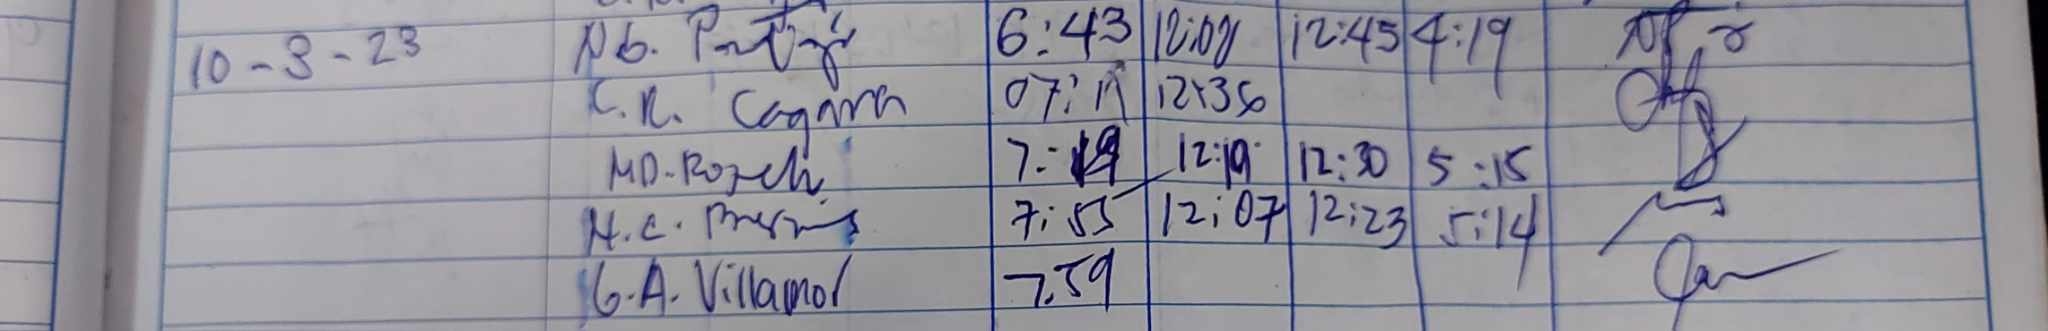 10-3-23 N.G. 6:43 12:02 12:45 4:19
C.R. Cagara 07:11 12:36
MD. Rozch 7:19 12:19 12:30 5:15
H.C. 7:55 12:07 12:23 5:14
G.A. Villamor 7.59